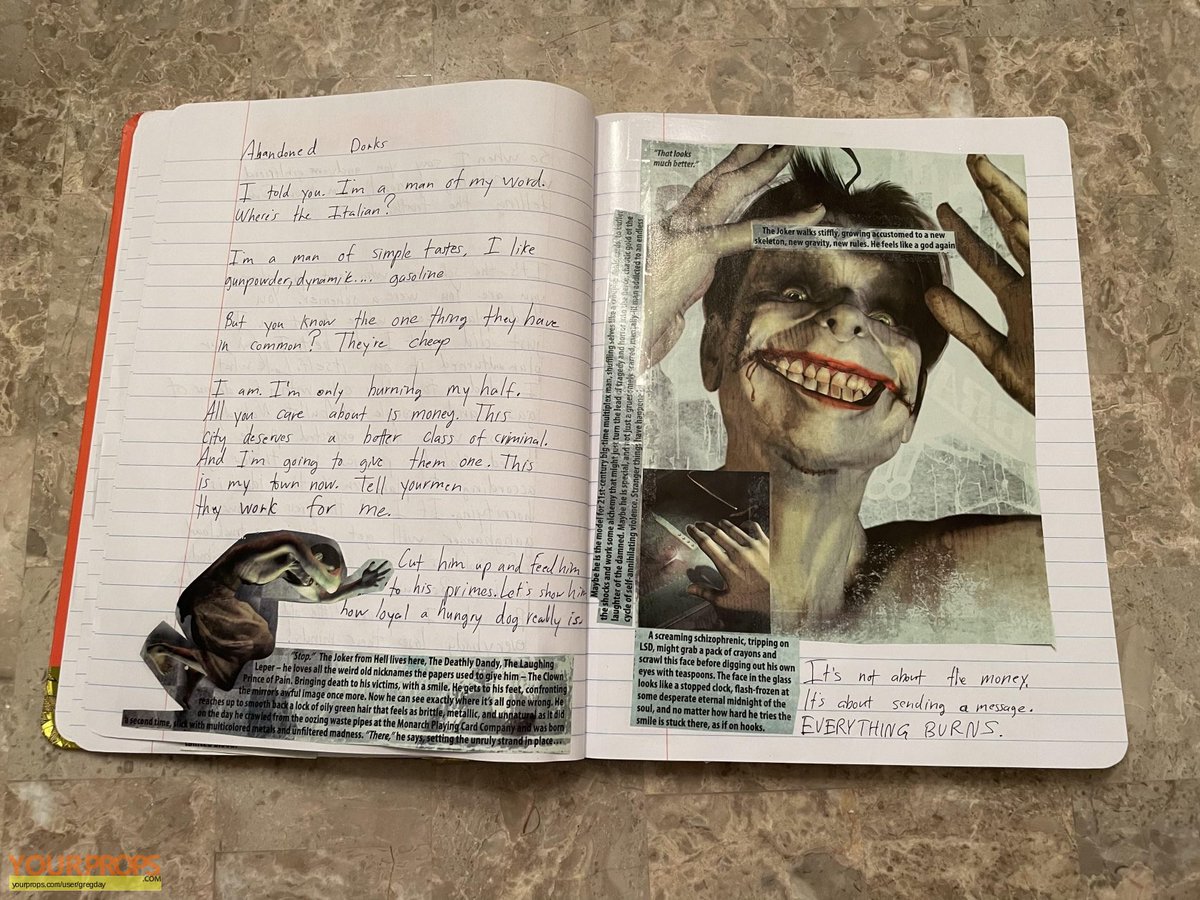 Abandoned Dorks
I told you. I'm a man of my word.
Where's the Italian?
I'm a man of simple tastes, I like
gunpowder, dynamik.... gasoline
But you know the one thing they have
in common? They're cheap
I am. I'm only burning my half.
All you care about is money. This
city deserves a better class of criminal.
And I'm going to give them one. This
is my town now. Tell your men
they work for me.
Cut him up and feed him
to his primes. Let's show him
how loyal a hungry dog really is.
"Stop." The Joker from Hell lives here, The Deathly Dandy, The Laughing
Leper – he loves all the weird old nicknames the papers used to give him – The Clown
Prince of Pain. Bringing death to his victims, with a smile. He gets to his feet, confronting
the mirror's awful image once more. Now he can see exactly where it's all gone wrong. He
reaches up to smooth back a lock of oily green hair that feels as brittle, metallic, and unnatural as it did
on the day he crawled from the oozing waste pipes at the Monarch Playing Card Company and was born
a second time, slick with multicolored metals and unfiltered madness. "There," he says, setting the unruly strand in place...
"That looks
much better."
The Joker walks stiffly, growing accustomed to a new
skeleton, new gravity, new rules. He feels like a god again
Maybe he is the model for 21st-century big-time multiplex man, shuffling selves like a croupier deals cards, to buffer
the shocks and work some alchemy that might just turn the lead of tragedy and horror into the fierce, chaotic gold of the
laughter of the damned. Maybe he is special, and not just a gruesomely scarred, mentally-ill man addicted to an endless
cycle of self-annihilating violence. Stranger things have happened
A screaming schizophrenic, tripping on
LSD, might grab a pack of crayons and
scrawl this face before digging out his own
eyes with teaspoons. The face in the glass
looks like a stopped clock, flash-frozen at
some desperate eternal midnight of the
soul, and no matter how hard he tries the
smile is stuck there, as if on hooks.
It's not about the money.
It's about sending a message.
EVERYTHING BURNS.
YOURPROPS.COM
yourprops.com/user/gregday